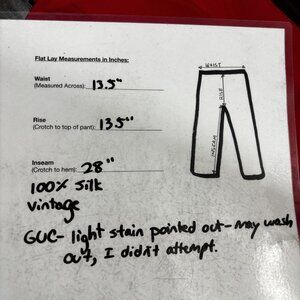 Flat Lay Measurements in Inches:
Waist
(Measured Across): 13.5"
Rise
(Crotch to top of pant): 13.5"
Inseam
(Crotch to hem): 28"
100% Silk
Vintage
GUC- light stain pointed out- may wash
out, I didn't attempt.
WAIST
RISE
INSEAM